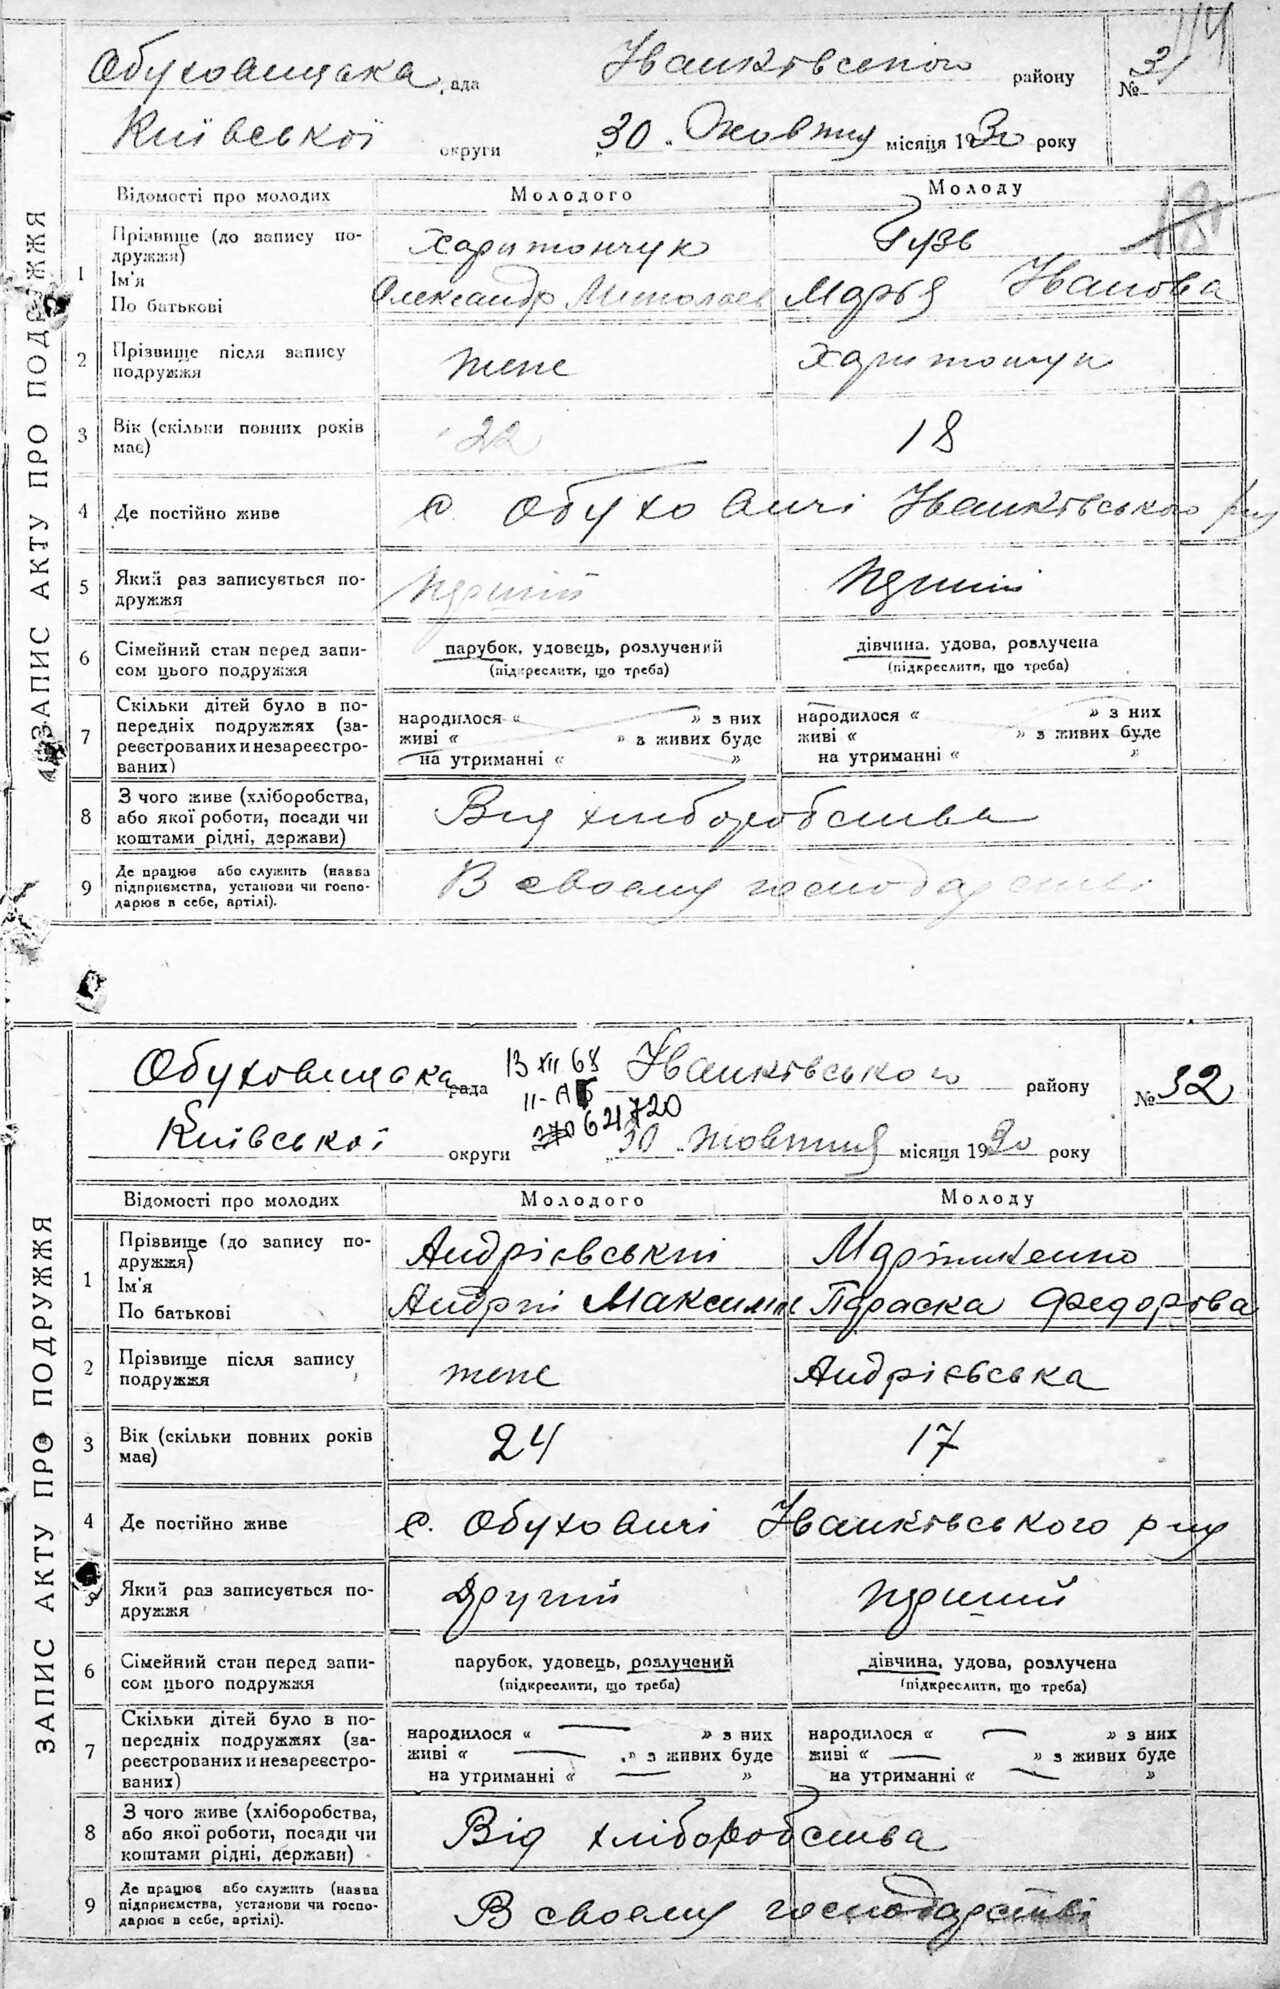 114
Обуховицька рада Іванківського району № 31
Київської округи „30„ Жовтня місяця 1930 року
Відомості про молодих Молодого Молоду
181
ЗАПИС АКТУ ПРО ПОДРУЖЖЯ
1 Прізвище (до запису по-
дружжя) Харитончук Гузь
Ім'я
По батькові Олександр Миколаєв Марья Іванова
2 Прізвище після запису
подружжя тепе Харитончук
3 Вік (скільки повних років
має) 22 18
4 Де постійно живе с. Обуховичі Іванківського р-ну
5 Який раз записується по-
дружжя Перший Перший
6 Сімейний стан перед запи-
сом цього подружжя
парубок, удовець, розлучений
(підкреслити, що треба)
дівчина, удова, розлучена
(підкреслити, що треба)
7 Скільки дітей було в по-
передніх подружжях (за-
реєстрованих и незареєстро-
ваних)
народилося « » з них
живі « » з живих буде
на утриманні « »
народилося « » з них
живі « » з живих буде
на утриманні « »
8 З чого живе (хліборобства,
або якої роботи, посади чи
коштами рідні, держави) Від хліборобства
9 Де працює або служить (назва
підприємства, установи чи госпо-
дарює в себе, артілі). В своему господарстві
Обуховицька рада Іванківського району № 32
13 XII 68
II-АБ
621720
Київської округи „30„ Жовтня місяця 1930 року
Відомості про молодих Молодого Молоду
ЗАПИС АКТУ ПРО ПОДРУЖЖЯ
1 Прізвище (до запису по-
дружжя) Андрієвський Мартиненко
Ім'я
По батькові Андрій Максим Параска Федорова
2 Прізвище після запису
подружжя тепе Андрієвська
3 Вік (скільки повних років
має) 24 17
4 Де постійно живе с. Обуховичі Іванківського р-ну
5 Який раз записується по-
дружжя Другий Перший
6 Сімейний стан перед запи-
сом цього подружжя
парубок, удовець, розлучений
(підкреслити, що треба)
дівчина, удова, розлучена
(підкреслити, що треба)
7 Скільки дітей було в по-
передніх подружжях (за-
реєстрованих и незареєстро-
ваних)
народилося « — » з них
живі « — » з живих буде
на утриманні « — »
народилося « — » з них
живі « — » з живих буде
на утриманні « — »
8 З чого живе (хліборобства,
або якої роботи, посади чи
коштами рідні, держави) Від хліборобства
9 Де працює або служить (назва
підприємства, установи чи госпо-
дарює в себе, артілі). В своему господарстві